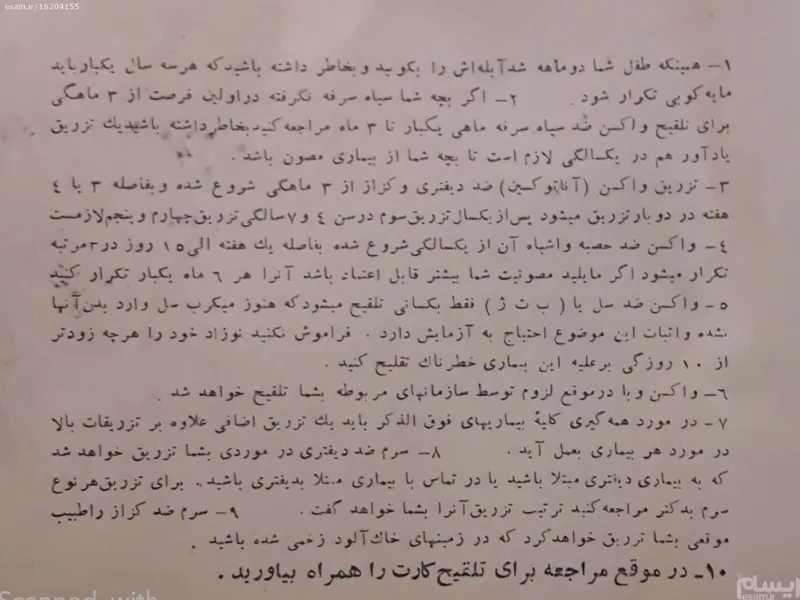 esam.ir/16204155
۱- همینکه طفل شما دوماهه شد آبله‌اش را بکوبید و بخاطر داشته باشید که هر سه سال یکبار باید
مایه کوبی تکرار شود. ۲- اگر بچه شما سیاه سرفه نگرفته در اولین فرصت از ۳ ماهگی
برای تلقیح واکسن ضد سیاه سرفه ماهی یکبار تا ۳ ماه مراجعه کنید بخاطر داشته باشید یك تزریق
یادآور هم در یکسالگی لازم است تا بچه شما از بیماری مصون باشد.
۳- تزریق واکسن (آناتوکسین) ضد دیفتری و کزاز از ۳ ماهگی شروع شده و بفاصله ۳ یا ۴
هفته در دو بار تزریق میشود پس از یکسال تزریق سوم در سن ۴ و ۷ سالگی تزریق چهارم و پنجم لازمست
۴- واکسن ضد حصبه و اشباه آن از یکسالگی شروع شده بفاصله یك هفته الی ۱۵ روز در ۳ مرتبه
تکرار میشود اگر مایلید مصونیت شما بیشتر قابل اعتماد باشد آنرا هر ۶ ماه یکبار تکرار کنید
۵- واکسن ضد سل یا (ب ث ژ) فقط بکسانی تلقیح میشود که هنوز میکرب سل وارد بدن آنها
نشده و اثبات این موضوع احتیاج به آزمایش دارد. فراموش نکنید نوزاد خود را هرچه زودتر
از ۱۰ روزگی برعلیه این بیماری خطرناك تقلیح کنید.
۶- واکسن وبا در موقع لزوم توسط سازمانهای مربوطه بشما تلقیح خواهد شد.
۷- در مورد همه‌گیری کلیهٔ بیماریهای فوق الذکر باید یك تزریق اضافی علاوه بر تزریقات بالا
در مورد هر بیماری بعمل آید. ۸- سرم ضد دیفتری در موردی بشما تزریق خواهد شد
که به بیماری دیفتری مبتلا باشید یا در تماس با بیماری مبتلا بدیفتری باشید. برای تزریق هر نوع
سرم بدکتر مراجعه کنید ترتیب تزریق آنرا بشما خواهد گفت. ۹- سرم ضد کزاز را طبیب
موقعی بشما تزریق خواهد کرد که در زمینهای خاك آلود زخمی شده باشید.
۱۰- در موقع مراجعه برای تلقیح کارت را همراه بیاورید.
Scanned with
ایسام
esam.ir